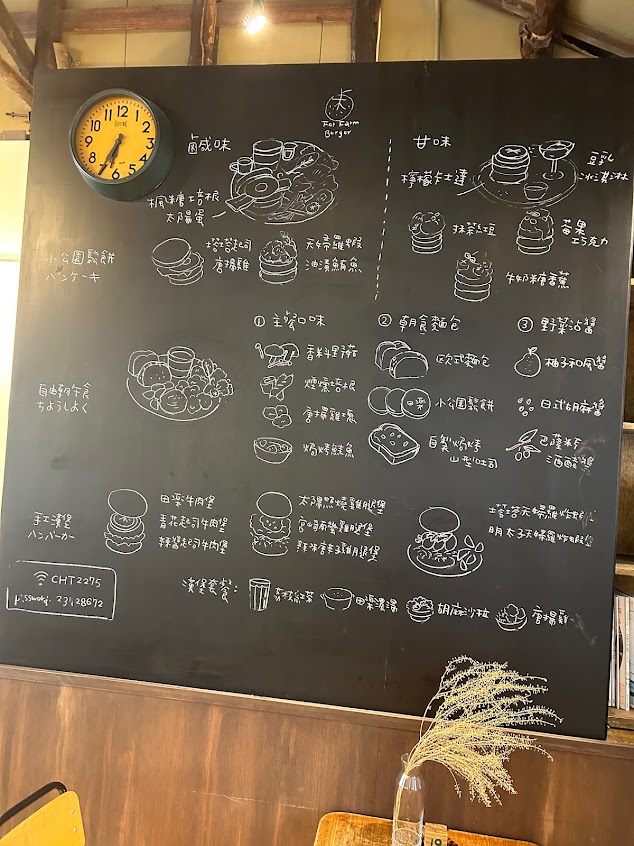 For Farm
Burger
鹹味
楓糖培根
太陽蛋
小公園鬆餅
パンケーキ
塔塔起司
唐揚雞
天婦羅蝦
油漬鮪魚
甘味
檸檬卡士達
豆乳
冰淇淋
抹茶紅豆
蘋果
巧克力
牛奶糖香蕉
自由朝午食
ちようしよく
① 主餐口味
香料野菇
煙燻培根
唐揚雞塊
焗烤鮭魚
② 朝食麵包
歐式麵包
小公園鬆餅
自製焗烤
山型吐司
③ 野菜沾醬
柚子和風醬
日式胡麻醬
巴薩米可
酒醋醬
手工漢堡
ハンバーガー
田樂牛肉堡
青花起司牛肉堡
辣醬起司牛肉堡
太陽照燒雞腿堡
宮崎南蠻雞腿堡
辣味唐辛子雞腿堡
塔塔天婦羅炸蝦堡
明太子天婦羅炸蝦堡
漢堡套餐:
紅茶
田樂濃湯
胡麻沙拉
唐揚雞
CHT2275
password: 231128672
12 1 2 3 4 5 6 7 8 9 10 11